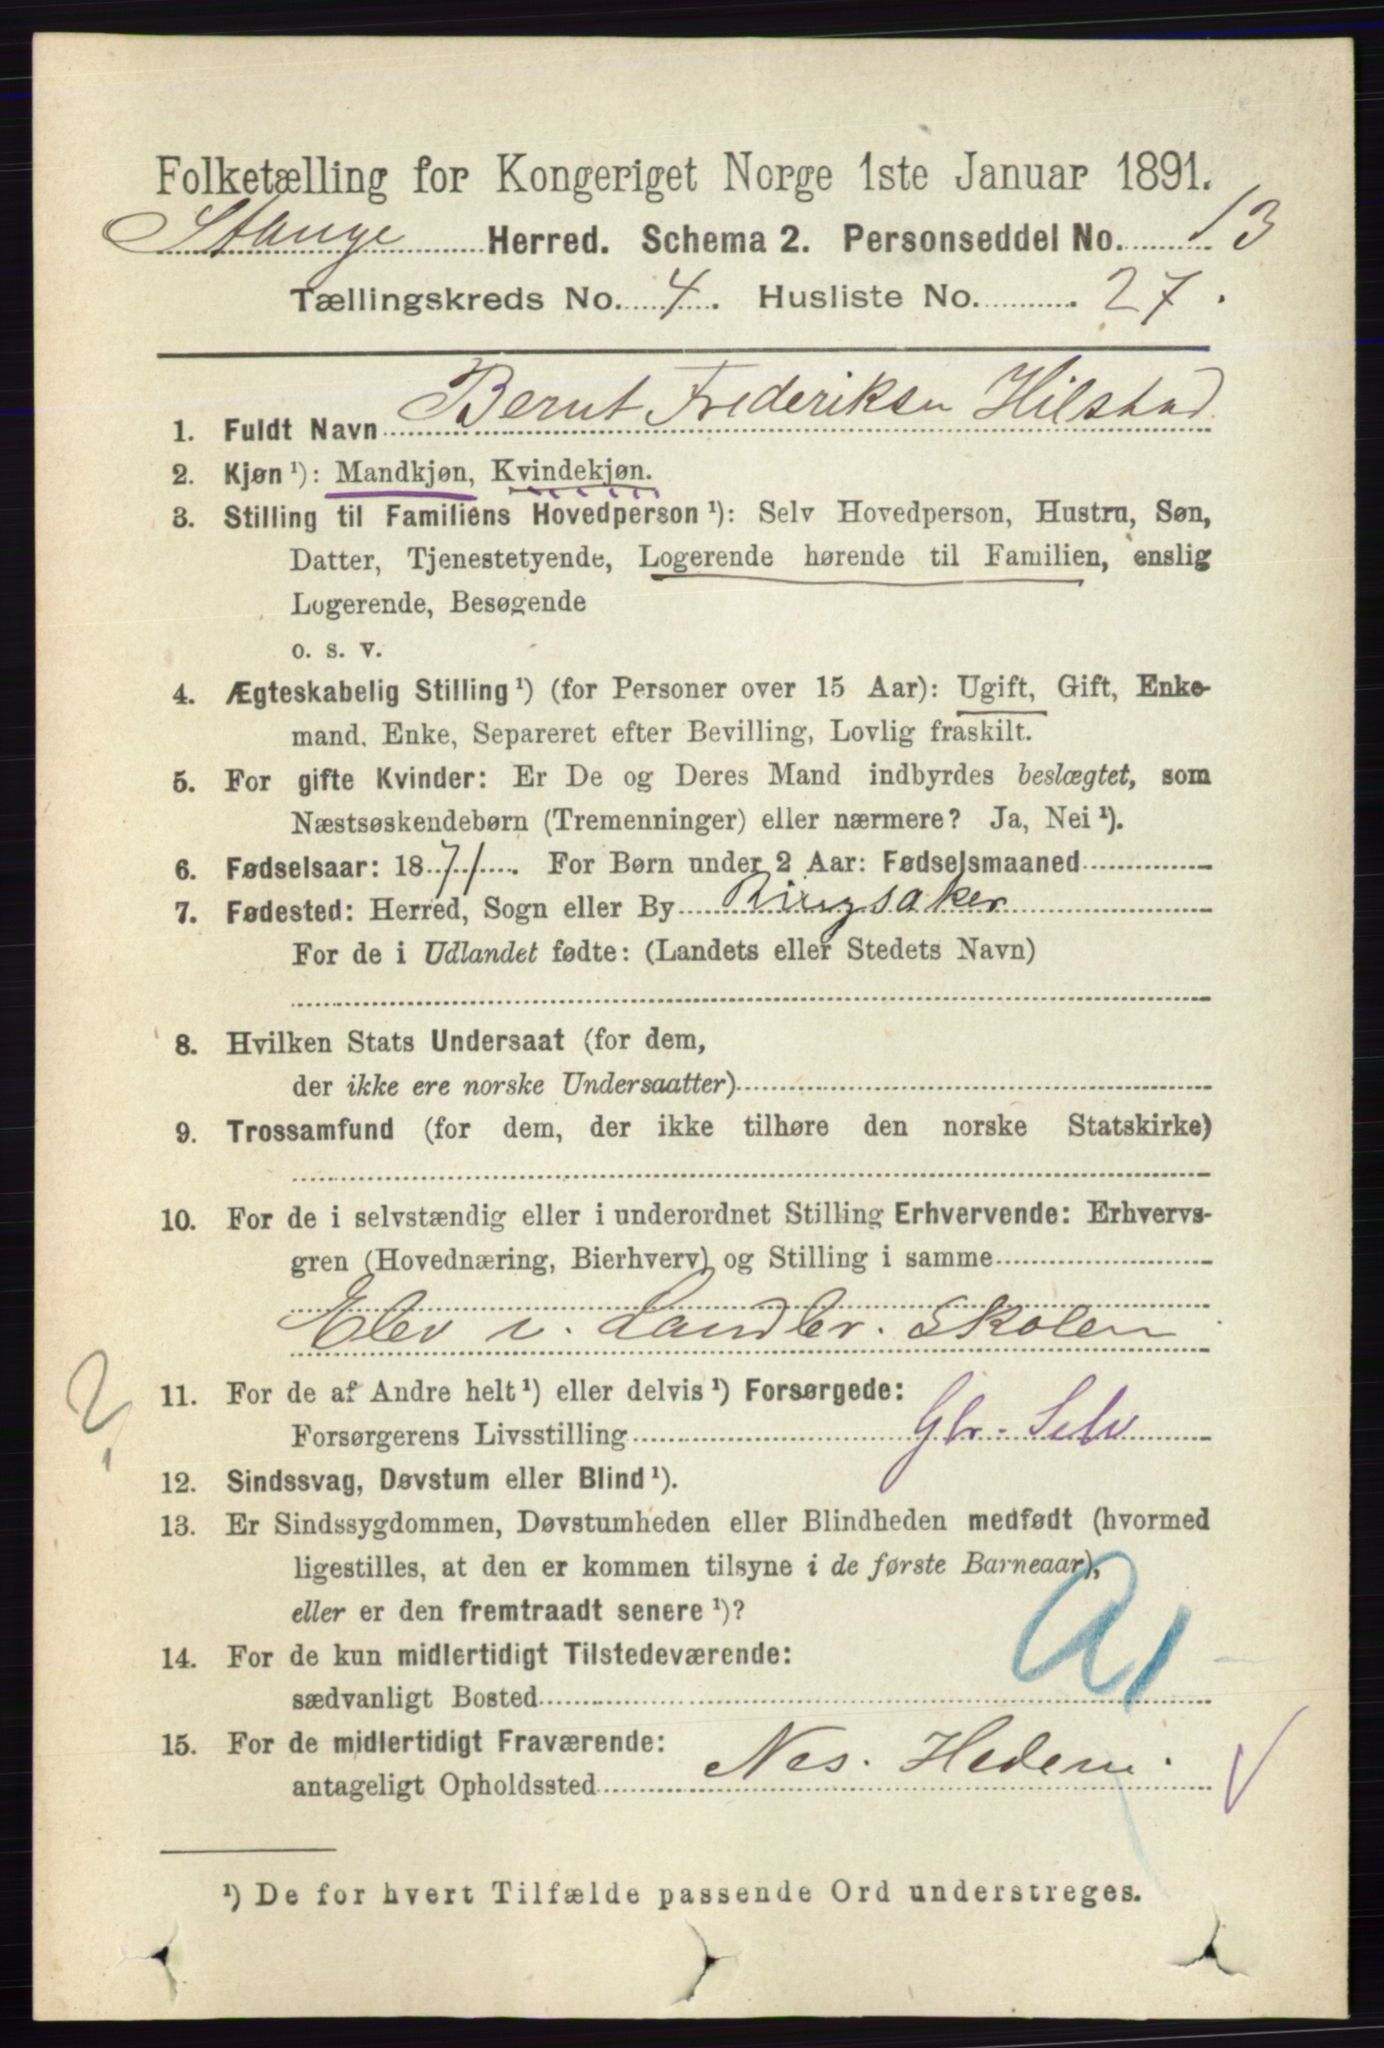 Folketælling for Kongeriget Norge 1ste Januar 1891.
Stange Herred. Schema 2. Personseddel No. 13
Tællingskreds No. 4. Husliste No. 27.
1. Fuldt Navn Bernt Frederiksen Hilstad
2. Kjøn ¹): Mandkjøn, Kvindekjøn.
3. Stilling til Familiens Hovedperson ¹): Selv Hovedperson, Hustru, Søn,
Datter, Tjenestetyende, Logerende hørende til Familien, enslig
Logerende, Besøgende
o. s. v.
4. Ægteskabelig Stilling ¹) (for Personer over 15 Aar): Ugift, Gift, Enke-
mand, Enke, Separeret efter Bevilling, Lovlig fraskilt.
5. For gifte Kvinder: Er De og Deres Mand indbyrdes beslægtet, som
Næstsøskendebørn (Tremenninger) eller nærmere? Ja, Nei ¹).
6. Fødselsaar: 1871. For Børn under 2 Aar: Fødselsmaaned
7. Fødested: Herred, Sogn eller By Ringsaker
For de i Udlandet fødte: (Landets eller Stedets Navn)
8. Hvilken Stats Undersaat (for dem,
der ikke ere norske Undersaatter)
9. Trossamfund (for dem, der ikke tilhøre den norske Statskirke)
10. For de i selvstændig eller i underordnet Stilling Erhvervende: Erhvervs-
gren (Hovednæring, Bierhverv) og Stilling i samme
Elev v. Landbr. Skolen
11. For de af Andre helt ¹) eller delvis ¹) Forsørgede:
Forsørgerens Livsstilling Gbr. Selv
12. Sindssvag, Døvstum eller Blind ¹).
13. Er Sindssygdommen, Døvstumheden eller Blindheden medfødt (hvormed
ligestilles, at den er kommen tilsyne i de første Barneaar),
eller er den fremtraadt senere ¹)?
14. For de kun midlertidigt Tilstedeværende:
sædvanligt Bosted
15. For de midlertidigt Fraværende:
antageligt Opholdssted Nes. Hedem.
¹) De for hvert Tilfælde passende Ord understreges.